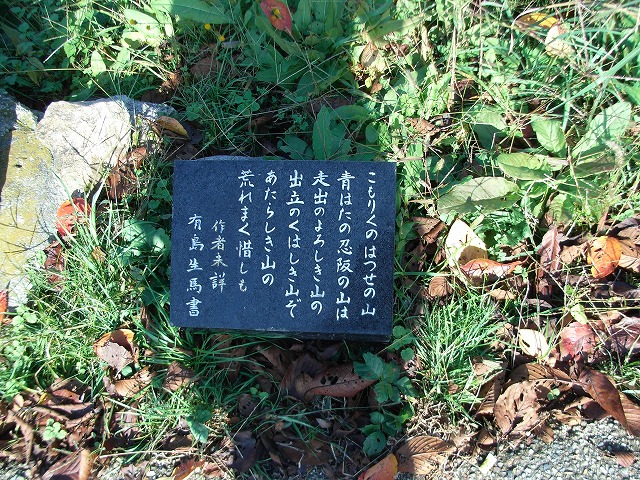 こもりくのはつせの山
青はたの忍阪の山は
走出のよろしき山の
出立のくはしき山ぞ
あたらしき山の
荒れまく惜しも
作者未詳
有島生馬書